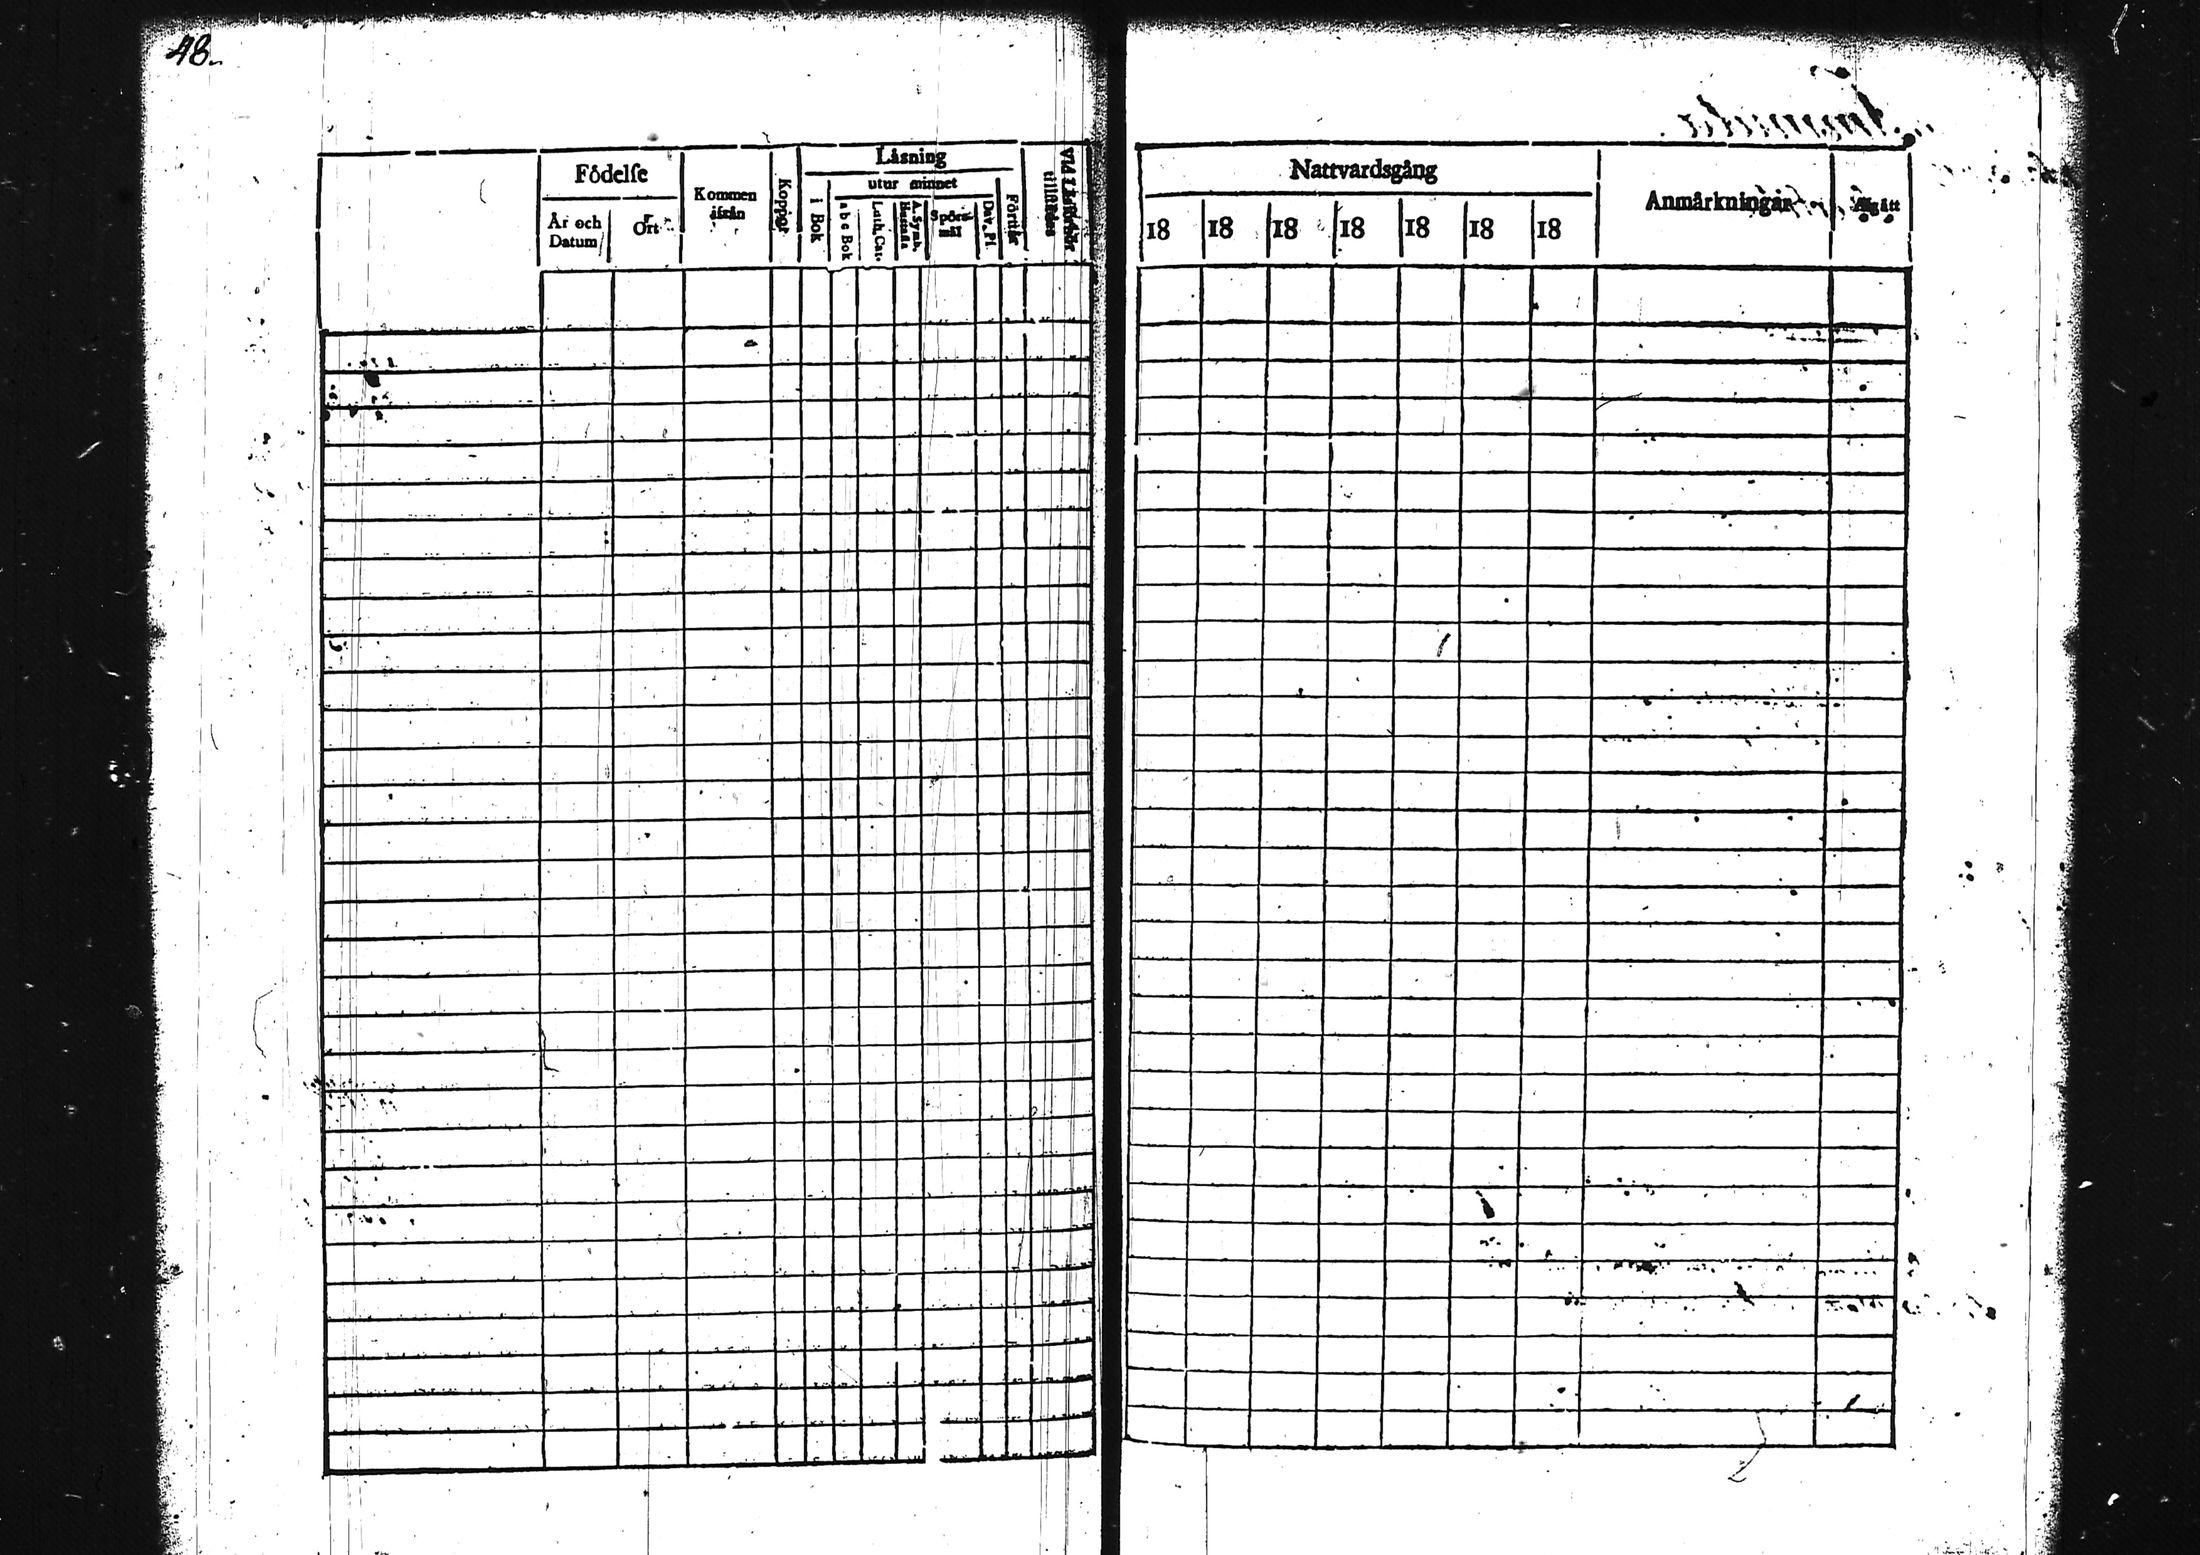 48.
Födelse
År och
Datum
Ort
Kommen
ifrån
Koppor
Läsning
i Bok
utur minnet
a b c Bok
Luth. Cat.
A. Symb.
Hustafla
Spörs-
mål
Dav. Ps.
Förstår
Vid Läsförhör
tillstädes
Nattvardsgång
18 18 18 18 18 18 18
Anmärkningar
Afgått